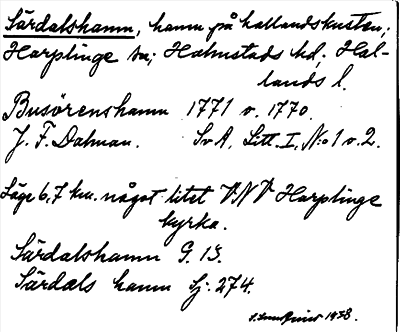 Särdalshamn, hamn på hallandskusten;
Harplinge sn; Halmstads hd; Hal-
lands l.
Busörenshamn 1771 o. 1770.
J. F. Dalman. SvA, Litt. I, No 1 o. 2.
Läge 6,7 km. något litet VNV Harplinge
kyrka.
Särdalshamn G. 13.
Särdals hamn Sj. 274.
1938.